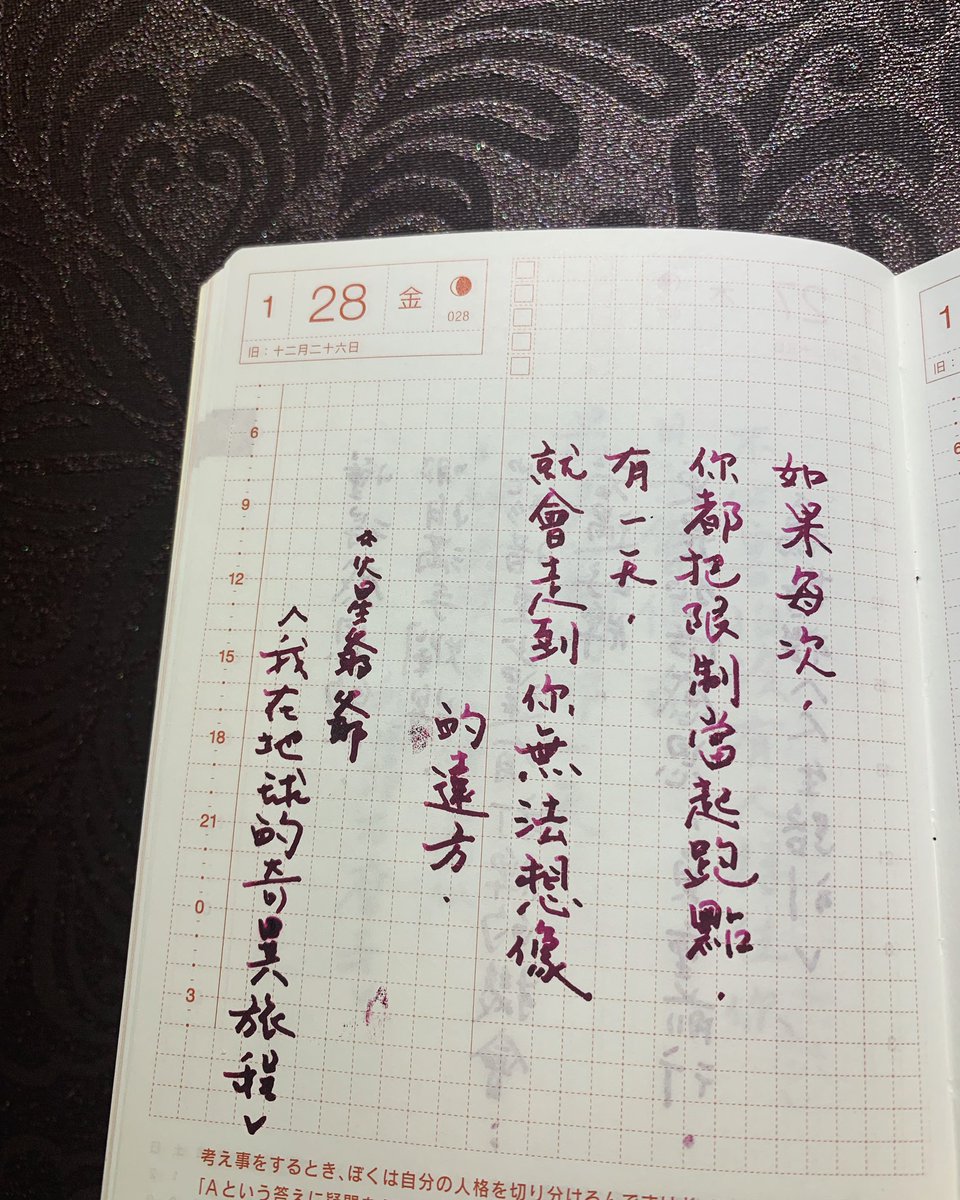 1 28 金
028
旧：十二月二十六日
如果每次，
你都把限制當起跑點．
有一天．
就會走到你無法想像
的遠方．
☆火星爺爺
〈我在地球的奇異旅程〉
6
9
12
15
18
21
0
3
考え事をするとき、ぼくは自分の人格を切り分けるんですけど
「Aという答えに疑問を
1
旧：
6